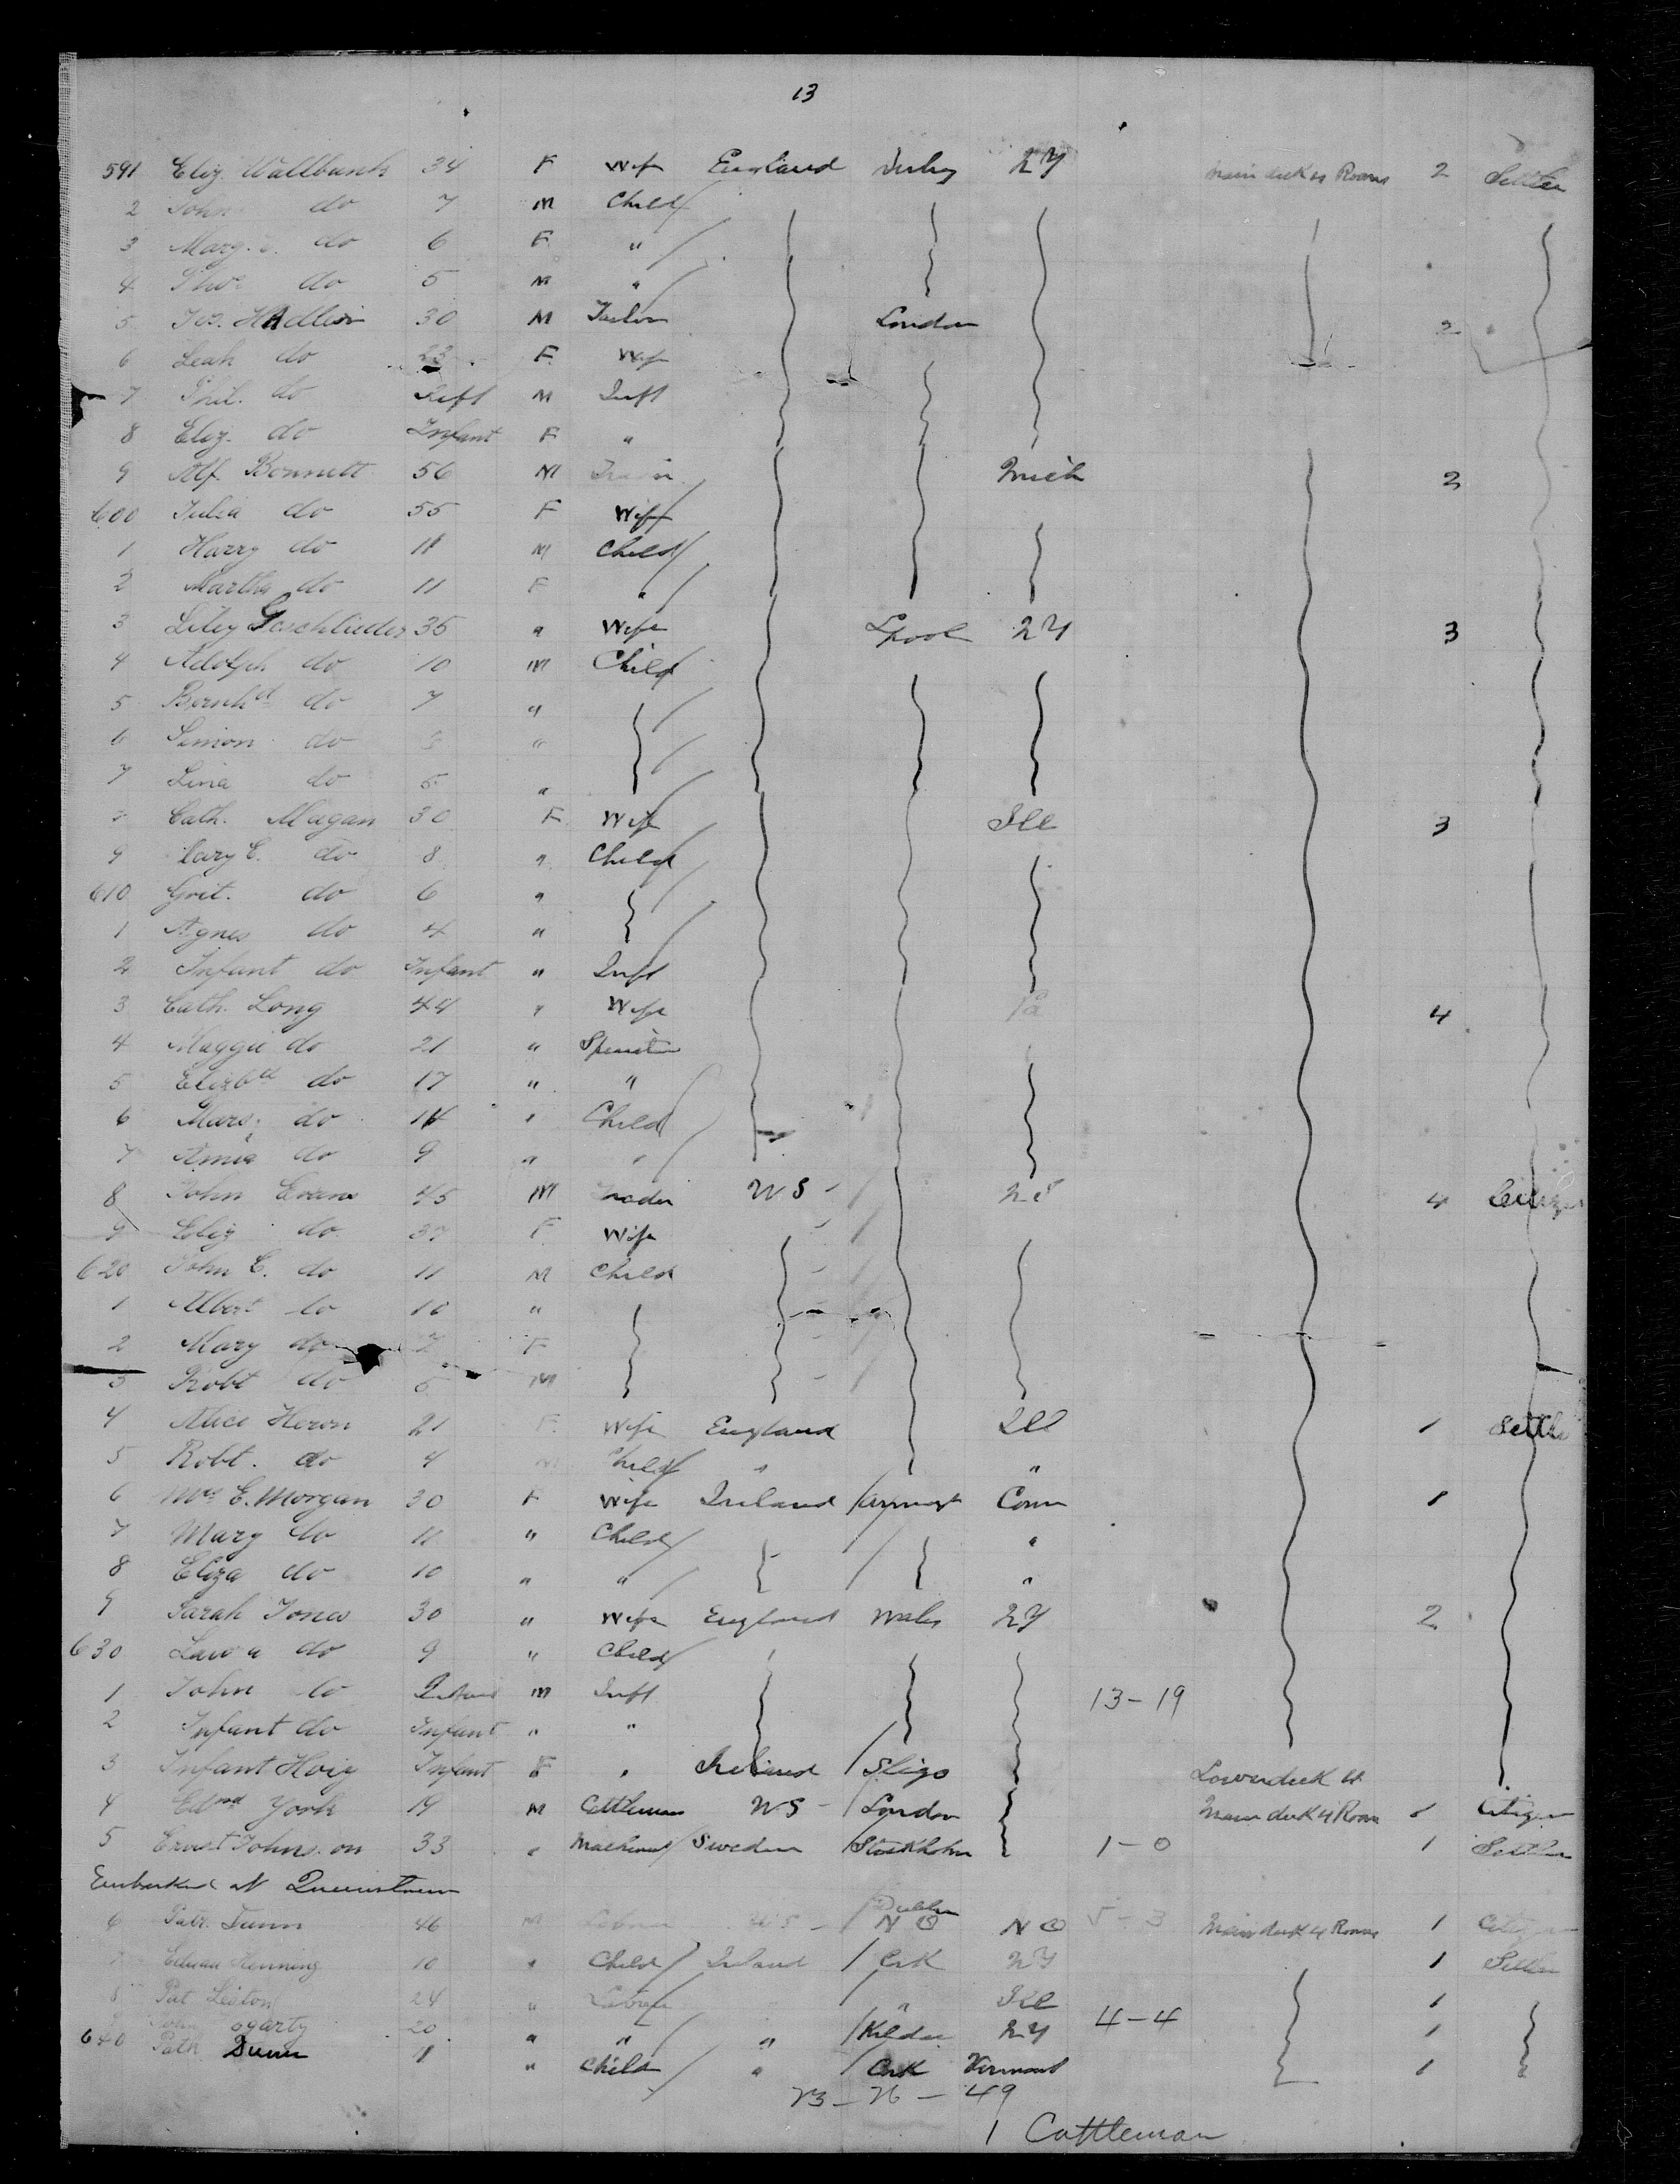 13
591 Eliz. Wallbank 34 F Wife England Derby NY Main deck 4 Rooms 2 Settler
2 John do 7 M Child
3 Marg. do 6 F "
4 Thos do 5 M "
5 Jos. 30 M Tailor London 2
6 Leah do F Wife
7 Phil. do Inft M Inft
8 Eliz. do Infant F "
9 Alf. Bonnett 56 M Mich 2
600 Julia do 55 F Wife
1 Harry do 11 M Child
2 Martha do 11 F "
3 Liley Goschlieder 35 " Wife Lpool NY 3
4 Adolph do 10 M Child
5 Bernhd do 7 "
6 Simon do "
7 Lina do 5 "
Cath. Magan 30 F Wife Ill 3
9 Mary E. do 8 " Child
610 Grit. do 6 "
1 Agnes do 4 "
2 Infant do Infant " Inft
3 Cath. Long 44 " Wife Pa 4
4 Maggie do 21 " Spinster
5 Elizbth do 17 " "
6 do 11 " Child
7 do 9 " "
8 John Evans 45 M Trader US 4 Citizen
9 Eliz do 37 F Wife
620 John E. do 11 M Child
1 Albert do 10 "
2 Mary do 7 F
3 Robt do 5 M
4 Alice Heron 21 F Wife England Ill 1 Settler
5 Robt. do 4 M Child " "
6 Mrs E. Morgan 30 F Wife Ireland Conn 1
7 Mary do 11 " Child "
8 Eliza do 10 " " "
9 Sarah Jones 30 " Wife England Wales NY 2
630 Laura do 9 " Child
1 John do Infant M Inft 13-19
2 Infant do Infant " "
3 Infant Hoig Infant F " Ireland Sligo Lowerdeck
4 Edmd York 19 M Cattleman US London Main deck 4 Rooms 1 Citizen
5 Ernst Johnson 33 " Machinist Sweden Stockholm 1-0 1 Settler
Embarked at Queenstown
6 Patr. Dunn 46 M Labourer US Dublin NO NO 5-3 Main deck 4 Rooms 1 Citizen
7 Henning 10 " Child Ireland Cork NY 1 Settler
8 Pat Liston 24 " Labourer " Ill 1
John Fogarty 20 " " " Kildare NY 4-4 1
640 Path Dunn 11 " Child " Cork Vermont 1
23-26-49
1 Cattleman